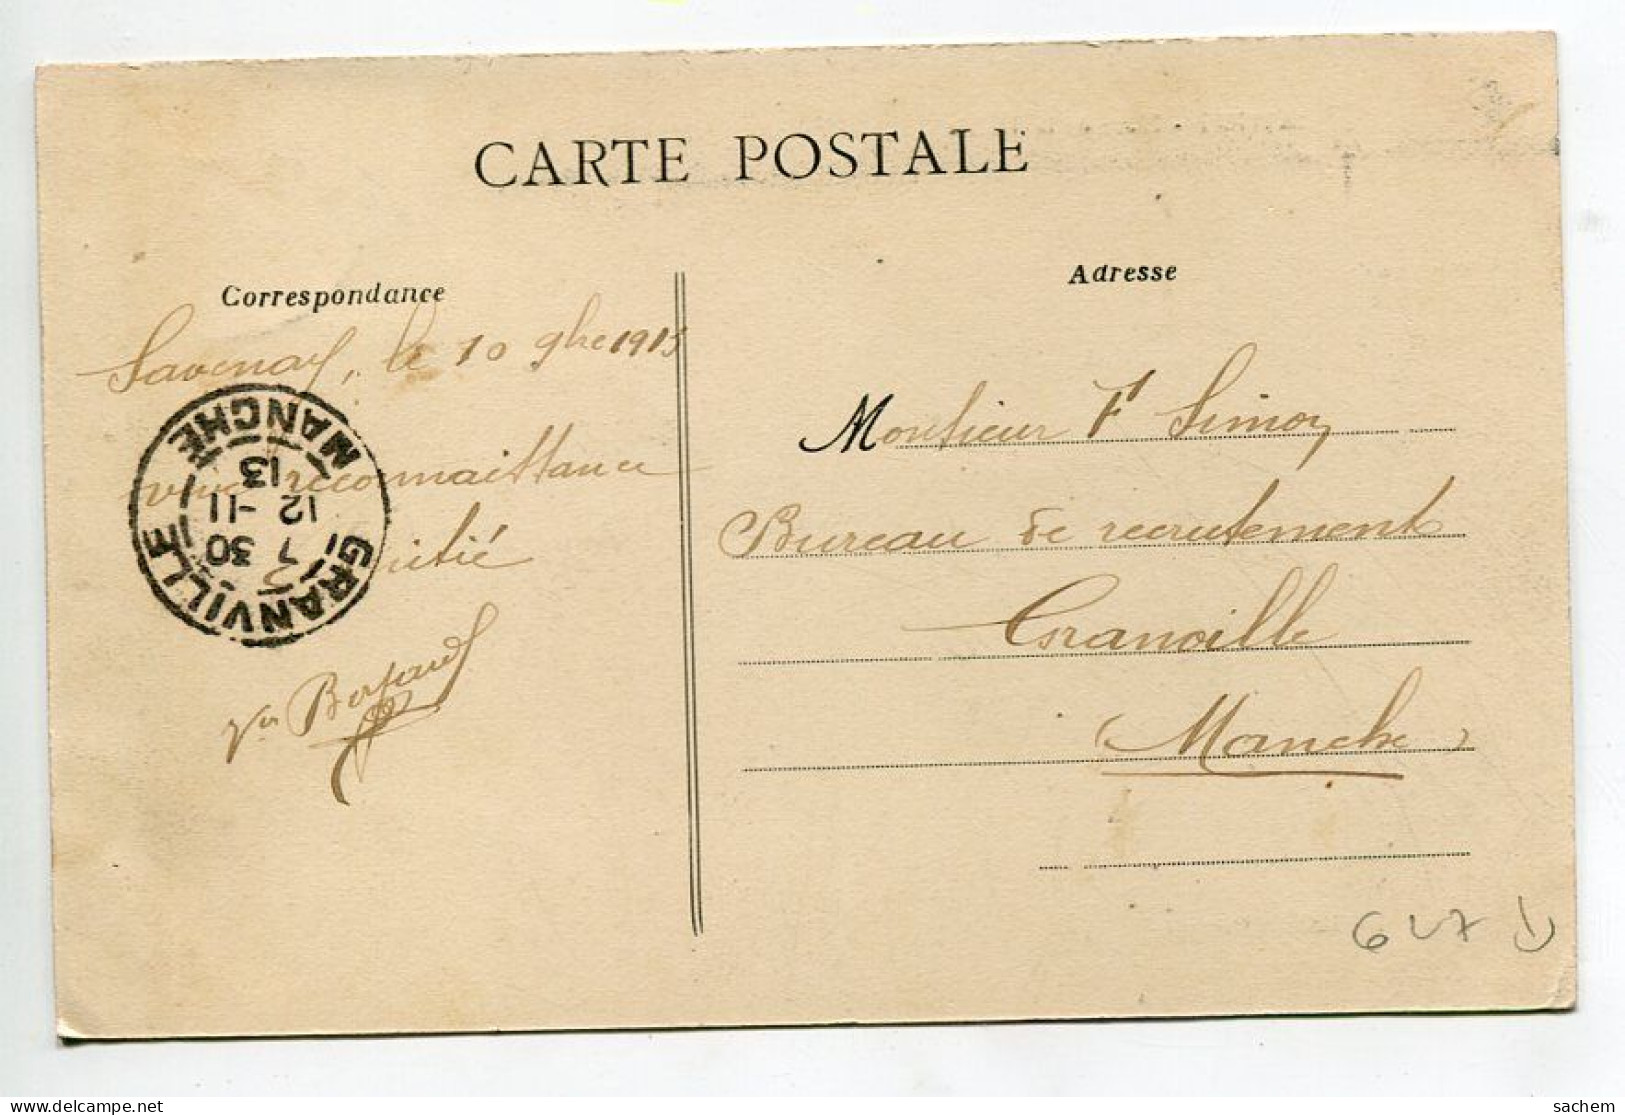 CARTE POSTALE
Correspondance
Savenay, le 10 9bre 1913
vive reconnaissance
amitié
Adresse
Monsieur F Simon
Bureau de recrutement
Granville
(Manche)
GRANVILLE
7 30
12 -11
13
MANCHE
delcampe.net
sachem